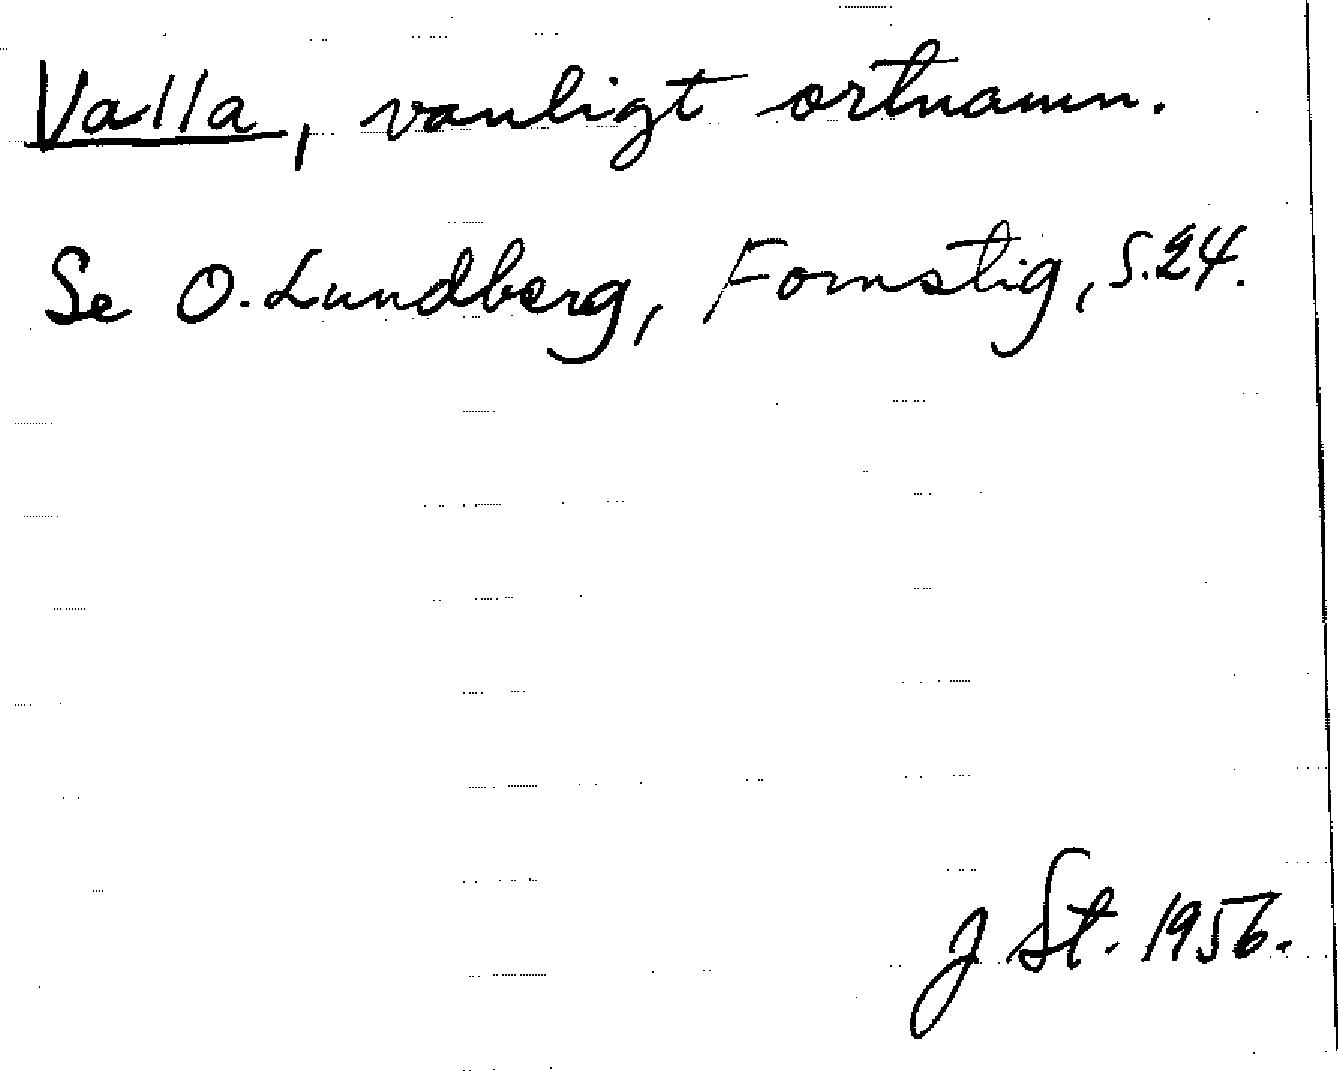 Valla, vanligt ortnamn.
Se O. Lundberg, Fornstig, s. 24.
J St. 1956.